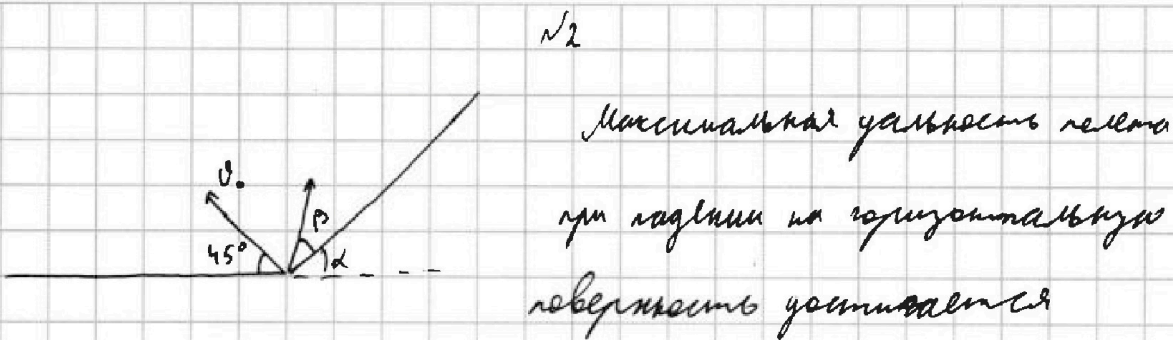 №2
Максимальная дальность полета
при падении на горизонтальную
v₀
β
45°
α
поверхность достигается